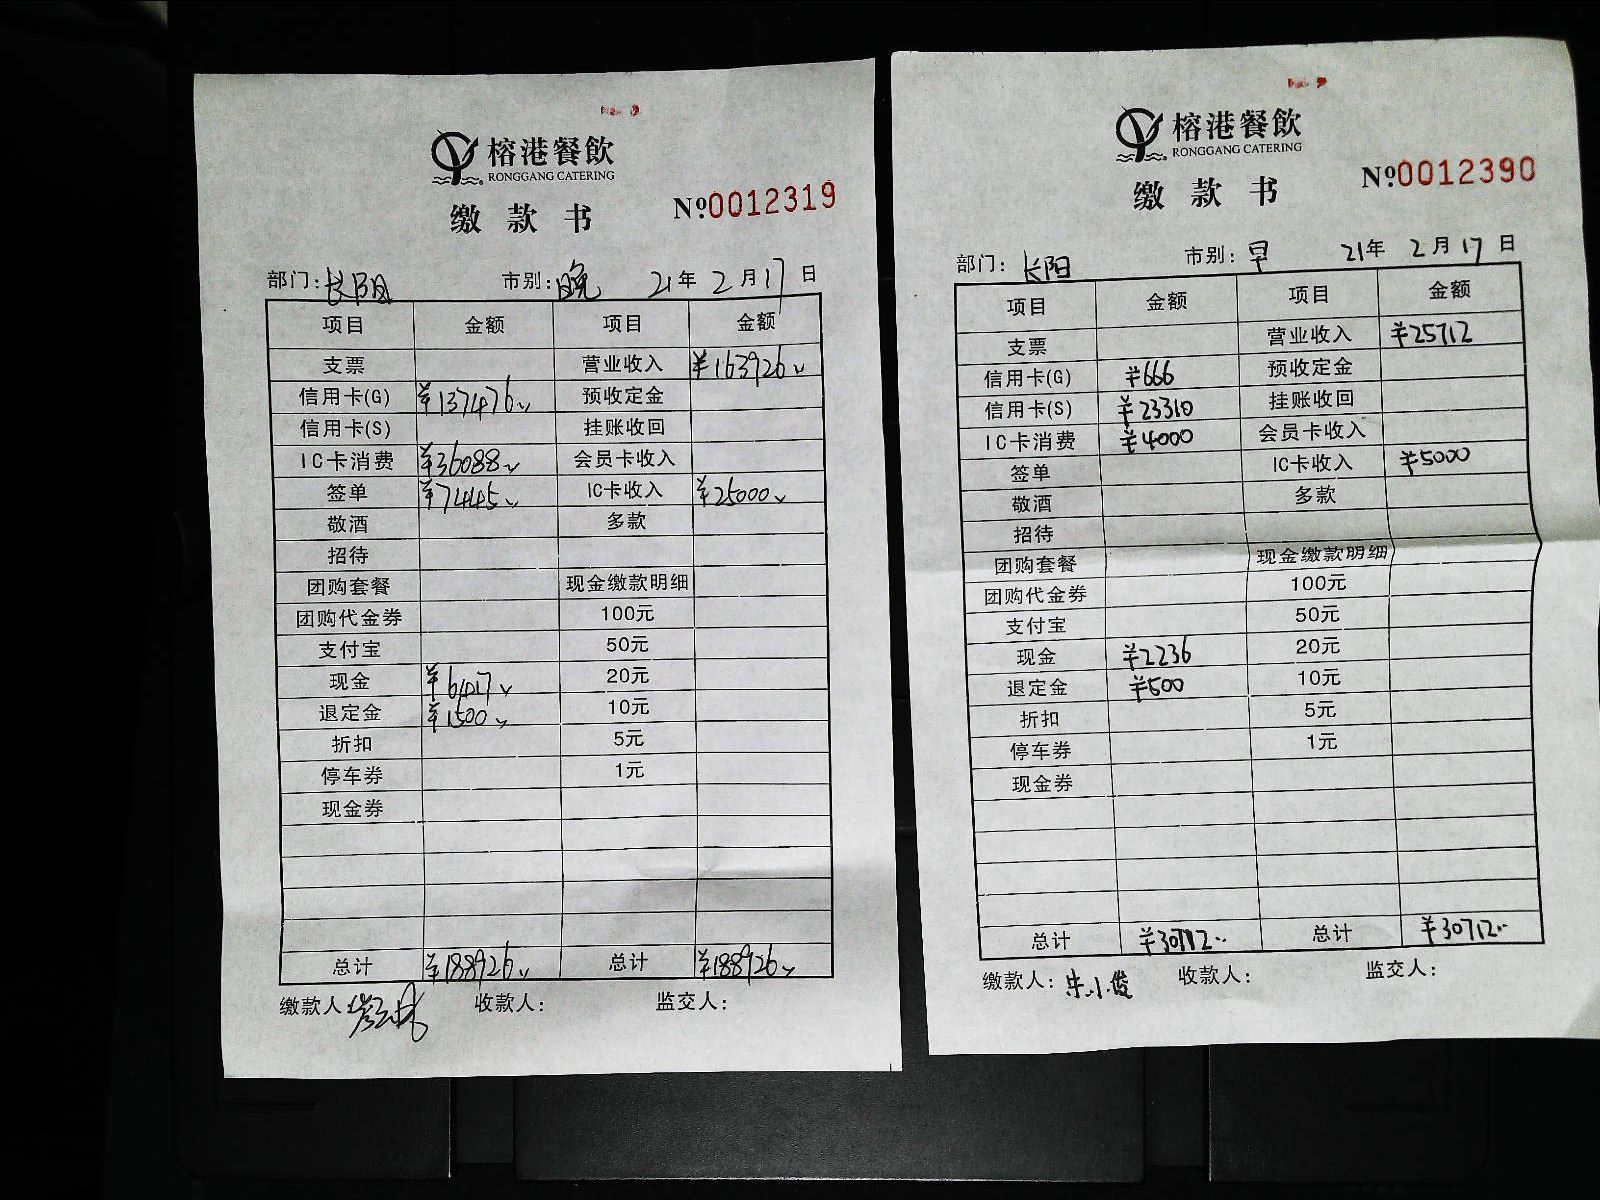 榕港餐飲
RONGGANG CATERING
缴款书
Nº0012319
部门：长阳 市别：晚 21年 2月17日
项目 金额 项目 金额
支票 营业收入 ¥163926
信用卡(G) ¥137476 预收定金
信用卡(S) 挂账收回
IC卡消费 ¥36088 会员卡收入
签单 ¥7445 IC卡收入 ¥25000
敬酒 多款
招待
团购套餐 现金缴款明细
团购代金券 100元
支付宝 50元
现金 ¥6417 20元
退定金 ¥1500 10元
折扣 5元
停车券 1元
现金券
总计 ¥188926 总计 ¥188926
缴款人： 收款人： 监交人：
榕港餐飲
RONGGANG CATERING
缴款书
Nº0012390
部门：长阳 市别：早 21年 2月17日
项目 金额 项目 金额
支票 营业收入 ¥25712
信用卡(G) ¥666 预收定金
信用卡(S) ¥23310 挂账收回
IC卡消费 ¥4000 会员卡收入
签单 IC卡收入 ¥5000
敬酒 多款
招待
团购套餐 现金缴款明细
团购代金券 100元
支付宝 50元
现金 ¥2236 20元
退定金 ¥500 10元
折扣 5元
停车券 1元
现金券
总计 ¥30712 总计 ¥30712
缴款人：朱小俊 收款人： 监交人：